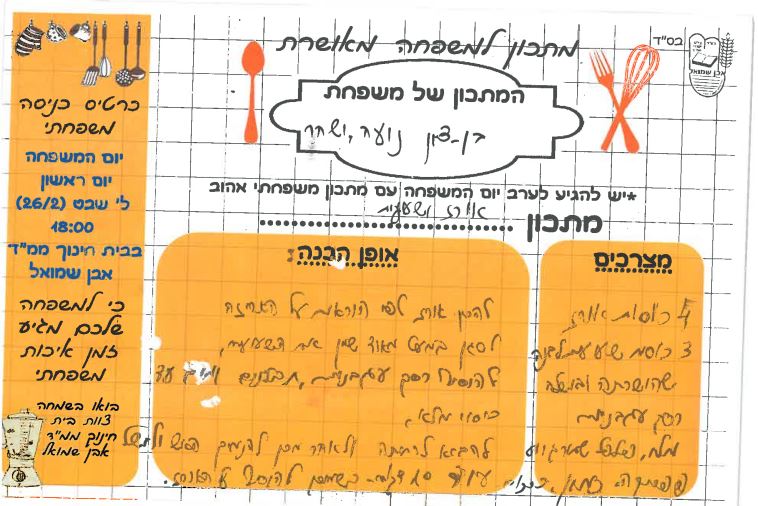 בס"ד
אבן שמואל
מתכון למשפחה מאושרת
המתכון של משפחת
בן-ציון נועה, ושחר
*יש להגיע לערב יום המשפחה עם מתכון משפחתי אהוב
מתכון אורז ושעועית
מצרכים
4 כוסות אורז
3 כוסות שעועית לבנה
שהושרתה ובושלה
רסק עגבניות
מלח, פלפל שחור
פפריקה
אופן הכנה:
להכין אורז לפי הוראות על האריזה
לטגן במעט מאוד שמן את השעועית,
להוסיף רסק עגבניות, תבלינים ומים עד
כיסוי מלא.
להביא לרתיחה ולאחר מכן להנמיך האש ולבשל
עוד דקות. להוסיף על האורז.
כרטיס כניסה
משפחתי
יום המשפחה
יום ראשון
ל' שבט (26/2)
18:00
בבית חינוך ממ"ד
אבן שמואל
כי למשפחה
שלכם מגיע
זמן איכות
משפחתי
בואו בשמחה
צוות בית
חינוך ממ"ד
אבן שמואל